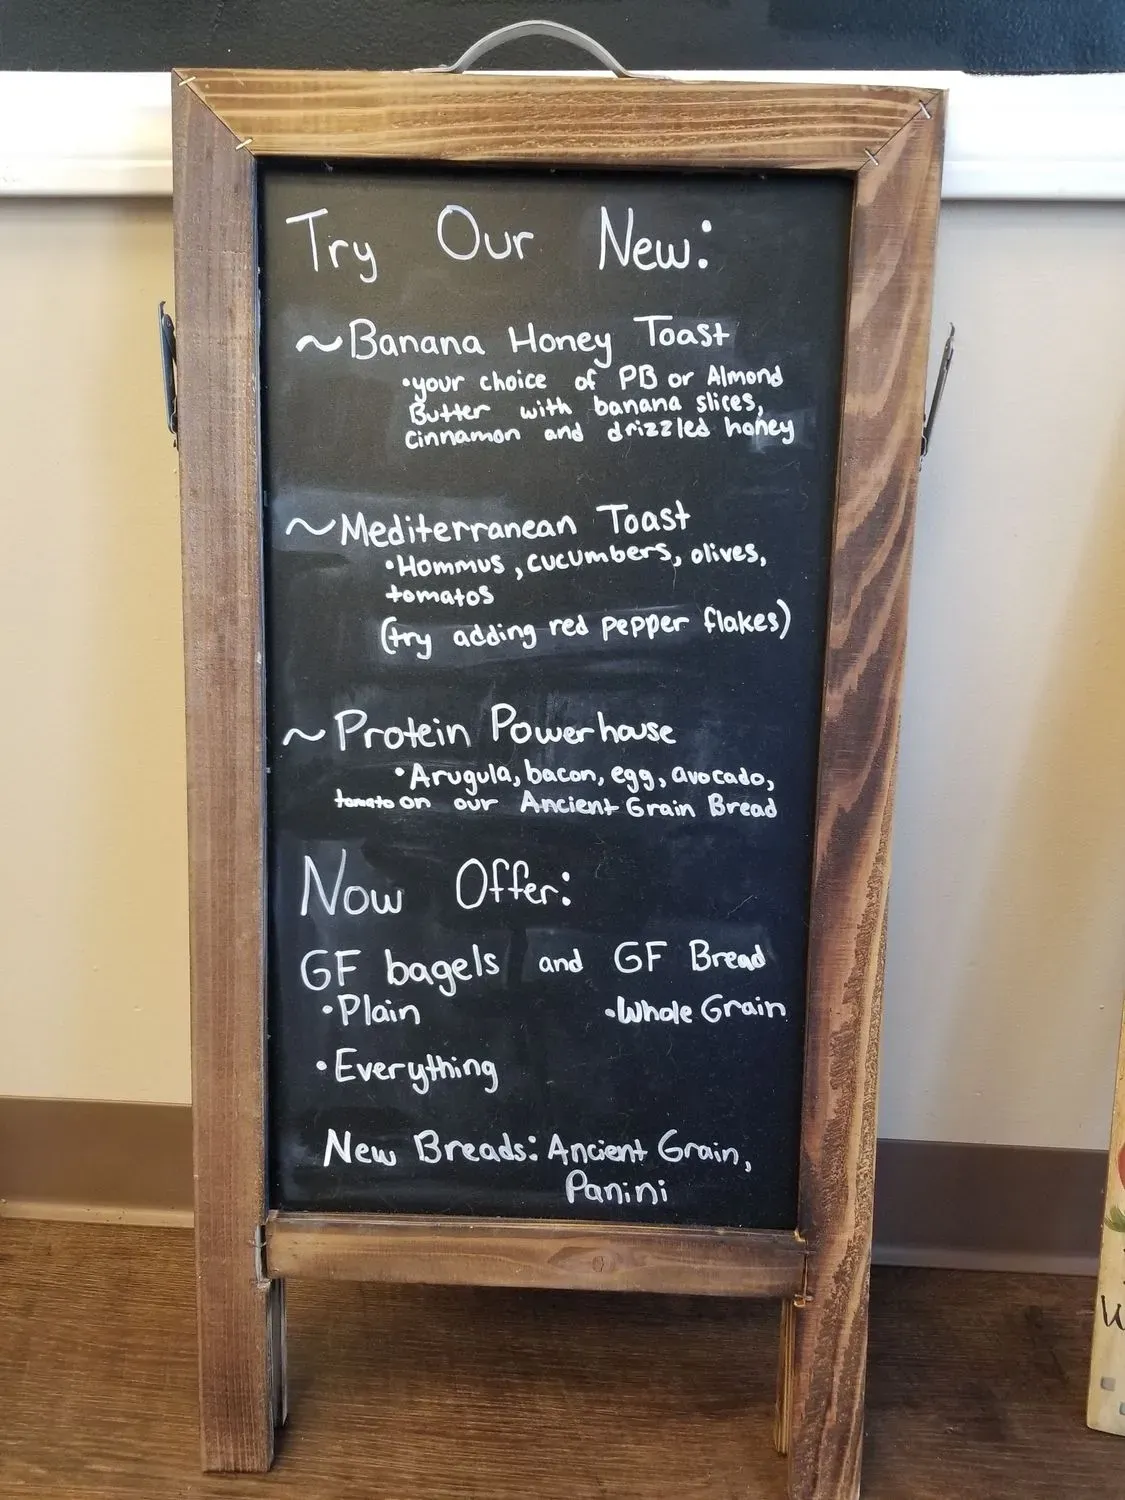 Try Our New:
~Banana Honey Toast
•your choice of PB or Almond
Butter with banana slices,
cinnamon and drizzled honey
~Mediterranean Toast
•Hommus, cucumbers, olives,
tomatos
(try adding red pepper flakes)
~Protein Powerhouse
•Arugula, bacon, egg, avocado,
tomato on our Ancient Grain Bread
Now Offer:
GF bagels and GF Bread
•Plain •Whole Grain
•Everything
New Breads: Ancient Grain,
Panini